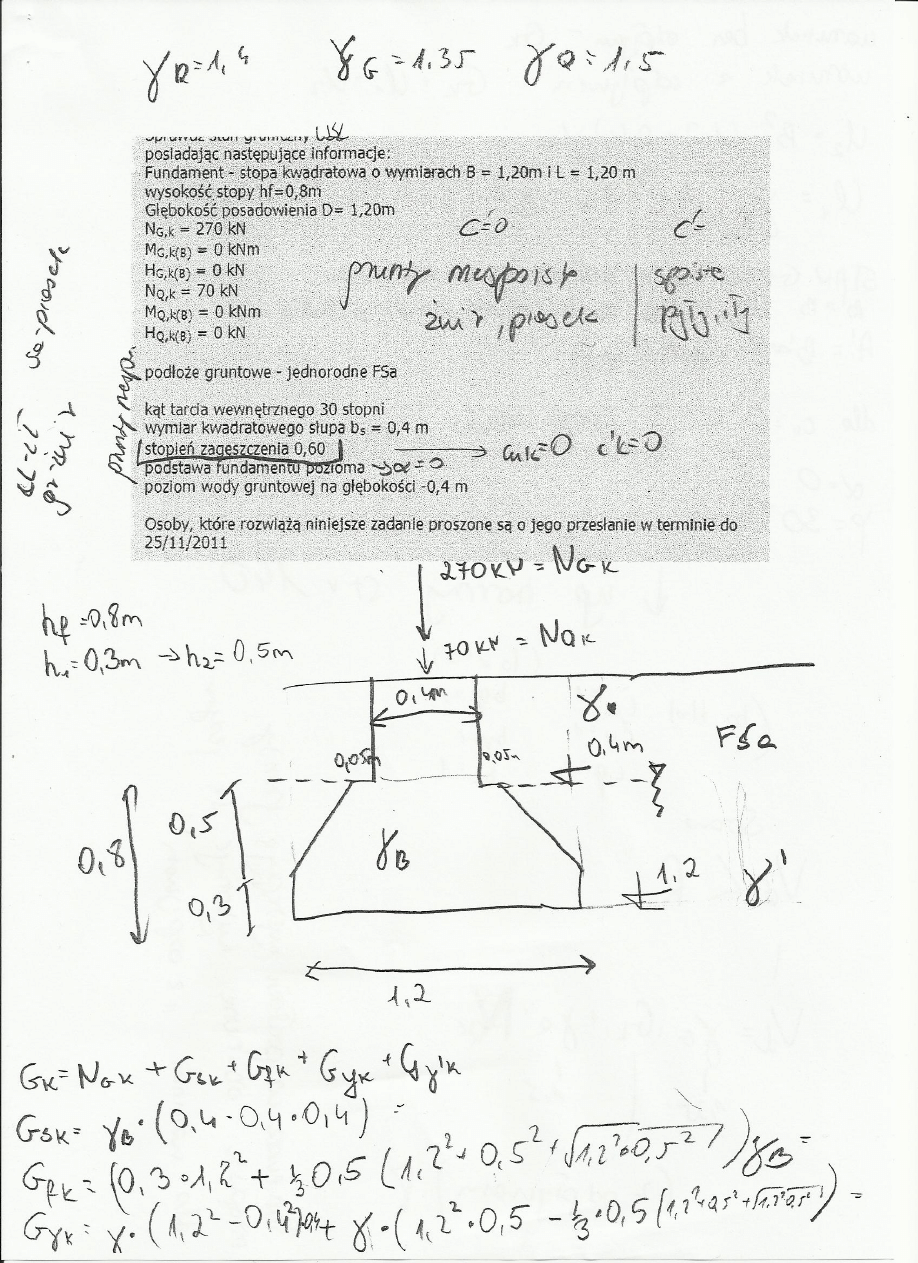 γR=1,4 γG=1,35 γQ=1,5
Sprawdź stan graniczny USL
posiadając następujące informacje:
Fundament - stopa kwadratowa o wymiarach B = 1,20m i L = 1,20 m
wysokość stopy hf=0,8m
Głębokość posadowienia D= 1,20m
NG,k = 270 kN
MG,k(B) = 0 kNm
HG,k(B) = 0 kN
NQ,k = 70 kN
MQ,k(B) = 0 kNm
HQ,k(B) = 0 kN
c'=0 c'=
grunty niespoiste spoiste
żwir, piasek pyły, iły
podłoże gruntowe - jednorodne FSa
kąt tarcia wewnętrznego 30 stopni
wymiar kwadratowego słupa bs = 0,4 m
stopień zagęszczenia 0,60 → cuk=0 c'k=0
podstawa fundamentu pozioma →α=0
poziom wody gruntowej na głębokości -0,4 m
Osoby, które rozwiążą niniejsze zadanie proszone są o jego przesłanie w terminie do
25/11/2011
sa-piasek
grunty niesp.
270KN = NGK
70KN = NQK
hf=0,8m
h1=0,3m →h2=0,5m
0,4m
γ
0,4m
FSa
0,05m 0,05m
0,5
0,8
γB
1,2
γ'
0,3
1,2
GK= NGK + GSK + GfK + GγK + Gγ'K
GSK= γB·(0,4·0,4·0,4) =
GfK = (0,3·1,2² + ⅓0,5 (1,2²+0,5²+√1,2²·0,5²))γB=
GγK= γ·(1,2²-0,4²)0,4+ γ'·(1,2²·0,5 - ⅓·0,5(1,2²+0,5²+√1,2²0,5²)) =